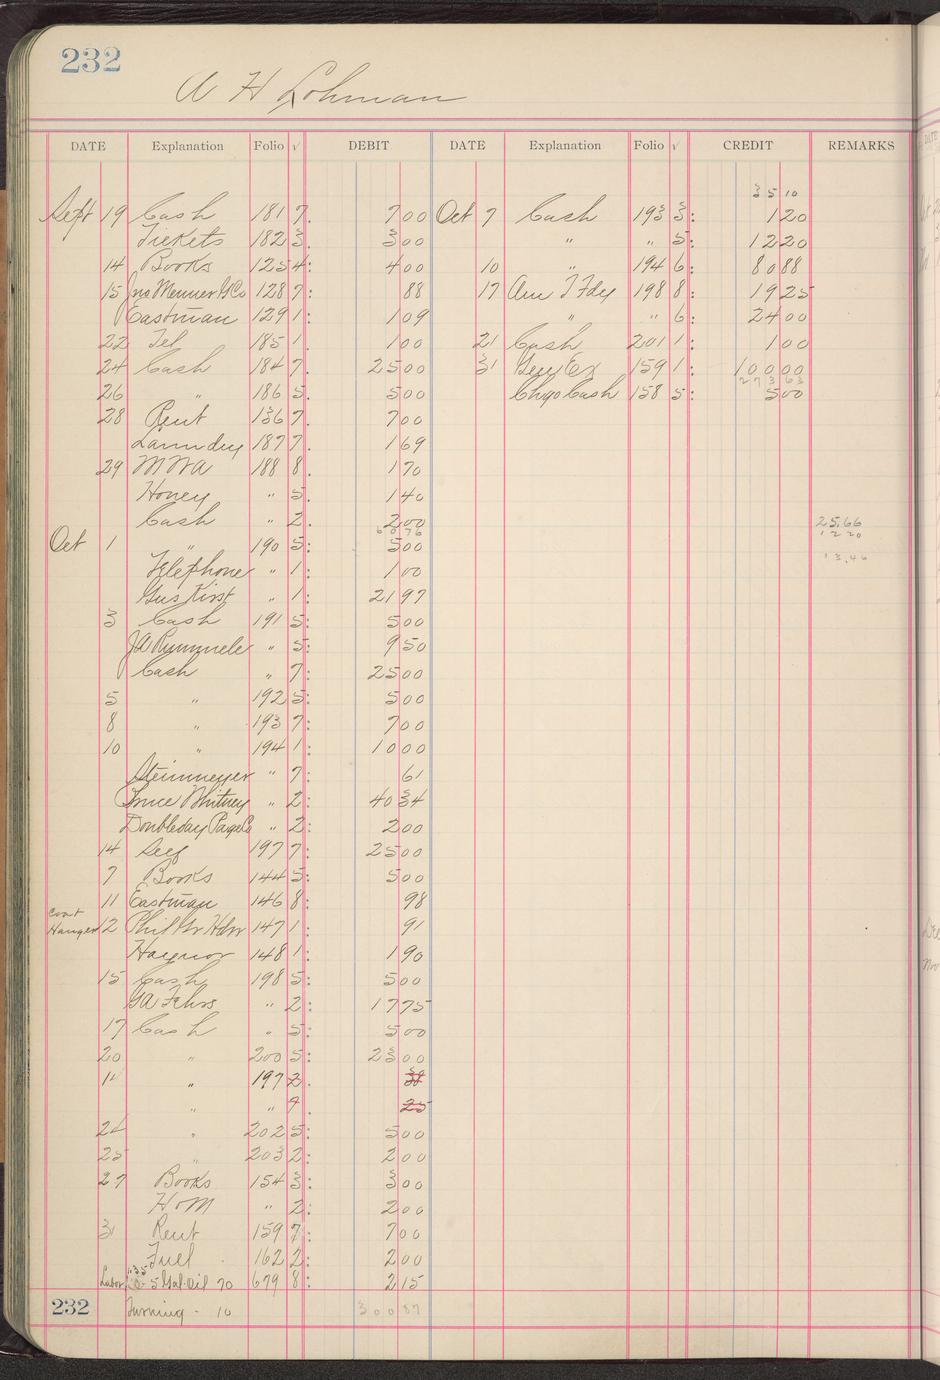 232
A H Lohman
DATE Explanation Folio √ DEBIT DATE Explanation Folio √ CREDIT REMARKS
35 10
Sept 19 Cash 181 7. 7 00 Oct 7 Cash 193 3: 1 20
Tickets 182 3. 3 00 " " 5: 12 20
14 Books 125 4: 4 00 10 " 194 6: 80 88
15 Jno Menner & Co 128 7: 88 17 Am T Fdy 198 8: 19 25
Eastman 129 1: 1 09 " " 6: 24 00
22 Tel 185 1. 1 00 21 Cash 201 1: 1 00
24 Cash 184 7. 25 00 31 Gen Ex 159 1: 100 00
273 63
26 " 186 5. 5 00 Chgo Cash 158 5: 5 00
28 Rent 136 7. 7 00
Laundry 187 7. 1 69
29 M W A 188 8. 1 70
Honey " 5. 1 40
Cash " 2. 2 00 25.66
60 76 12 20
Oct 1 " 190 5: 5 00
13.46
Telephone " 1: 1 00
Gus Kirst " 1: 21 97
3 Cash 191 5: 5 00
JA Rummele " 5: 9 50
Cash " 7: 25 00
5 " 192 5: 5 00
8 " 193 7: 7 00
10 " 194 1: 10 00
Steinmeyer " 7: 61
Bruce Whitney " 2: 40 34
Doubleday Page Co " 2: 2 00
14 Self 197 7: 25 00
7 Books 144 5: 5 00
11 Eastman 146 8: 98
coat
Hanger 12 Phil Gr Hdw 147 1: 91
Haynor 148 1: 1 90
15 Cash 198 5: 5 00
GA Fehrs " 2: 17 75
17 Cash " 5: 5 00
20 " 200 5: 23 00
14 " 197 2. 38
" " 7. 25
24 " 202 5: 5 00
25 " 203 2: 2 00
27 Books 154 3: 3 00
H & M " 2: 2 00
31 Rent 159 7: 7 00
Fuel 162 2: 2 00
1.35
Labor 5 Gal. Oil 70 679 8: 2 15
232 Turning - 10 300 87